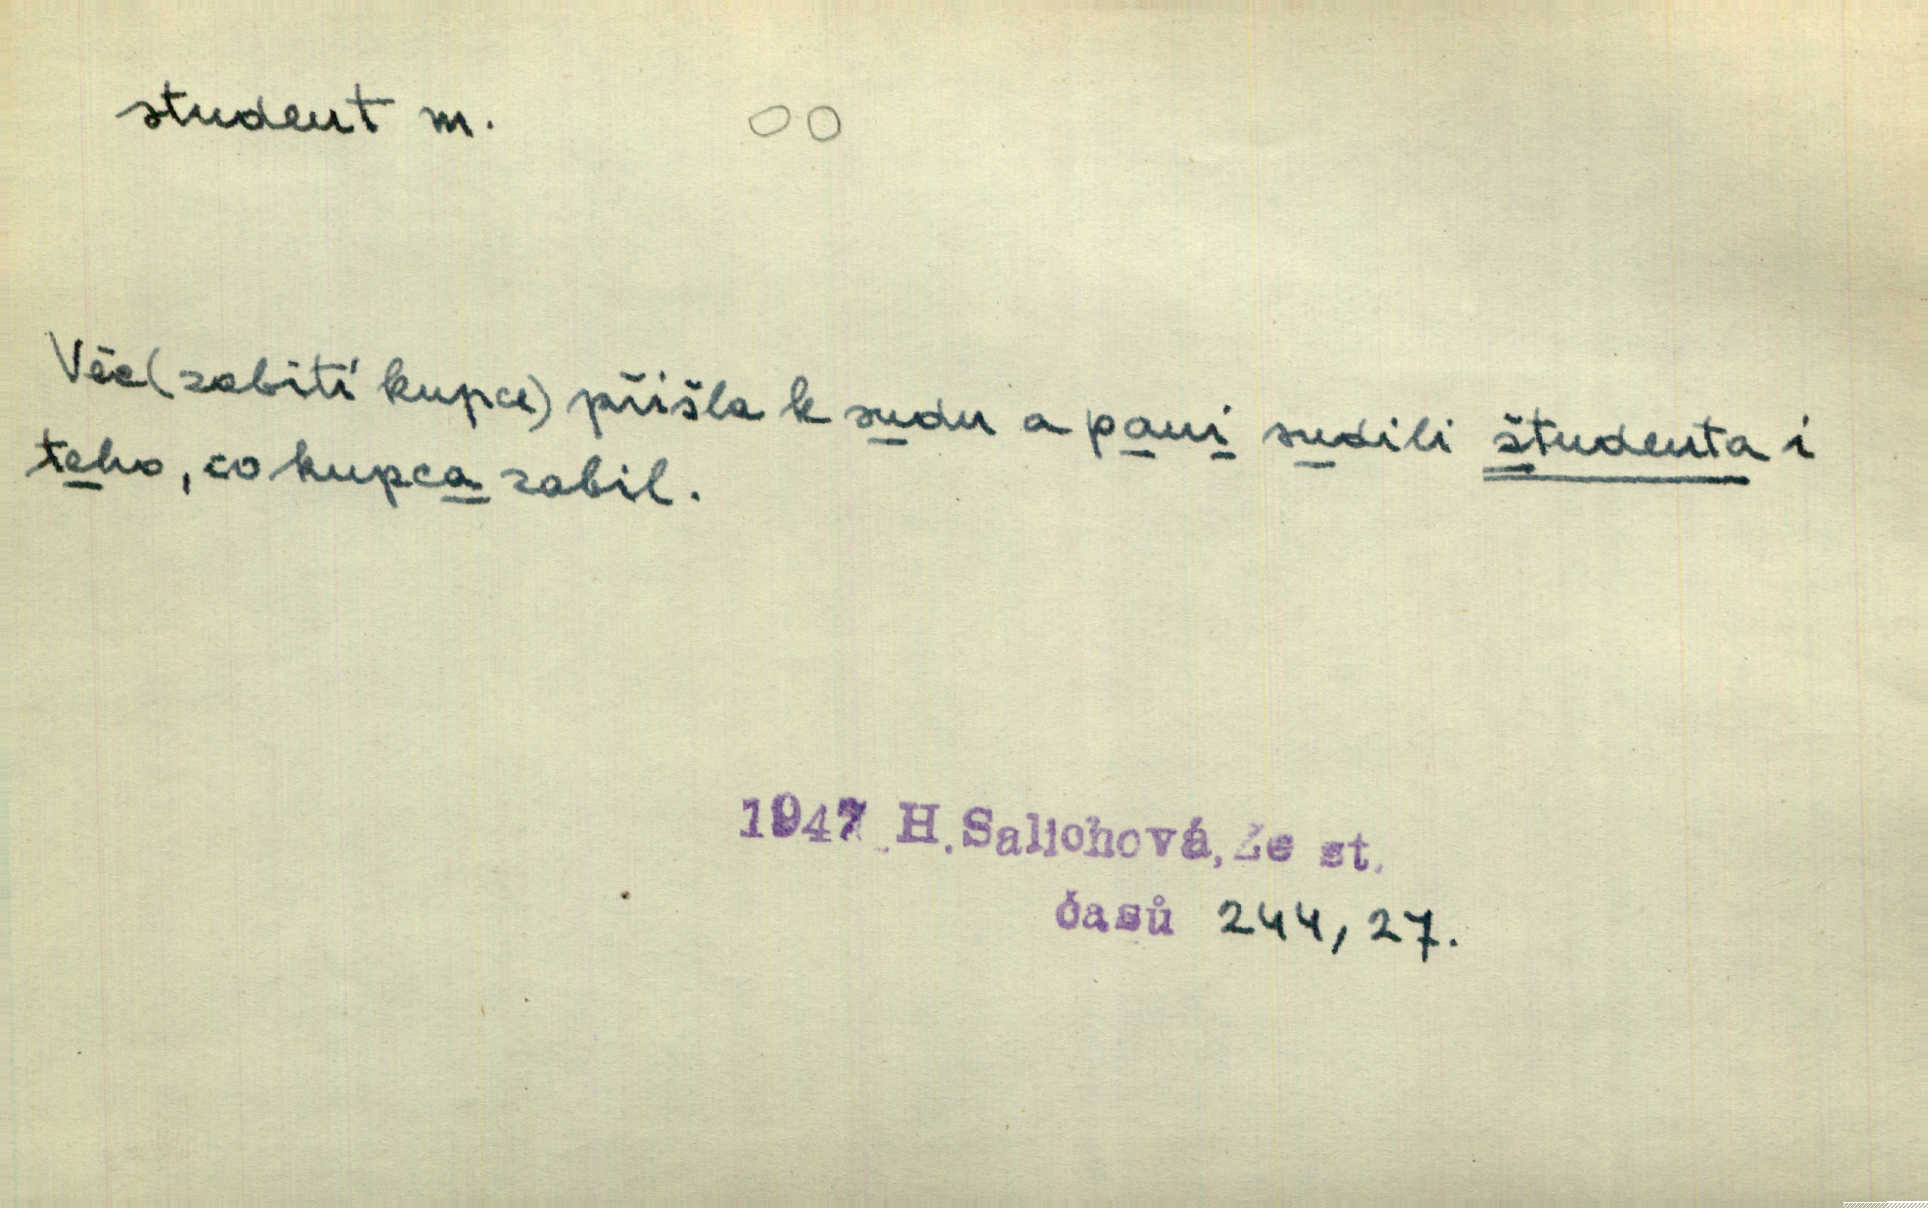 student m. OO
Věc (zabití kupce) přišla k sudu a pani sudili študenta i
teho, co kupca zabil.
1947 H. Salichová, Ze st.
časů 244, 27.